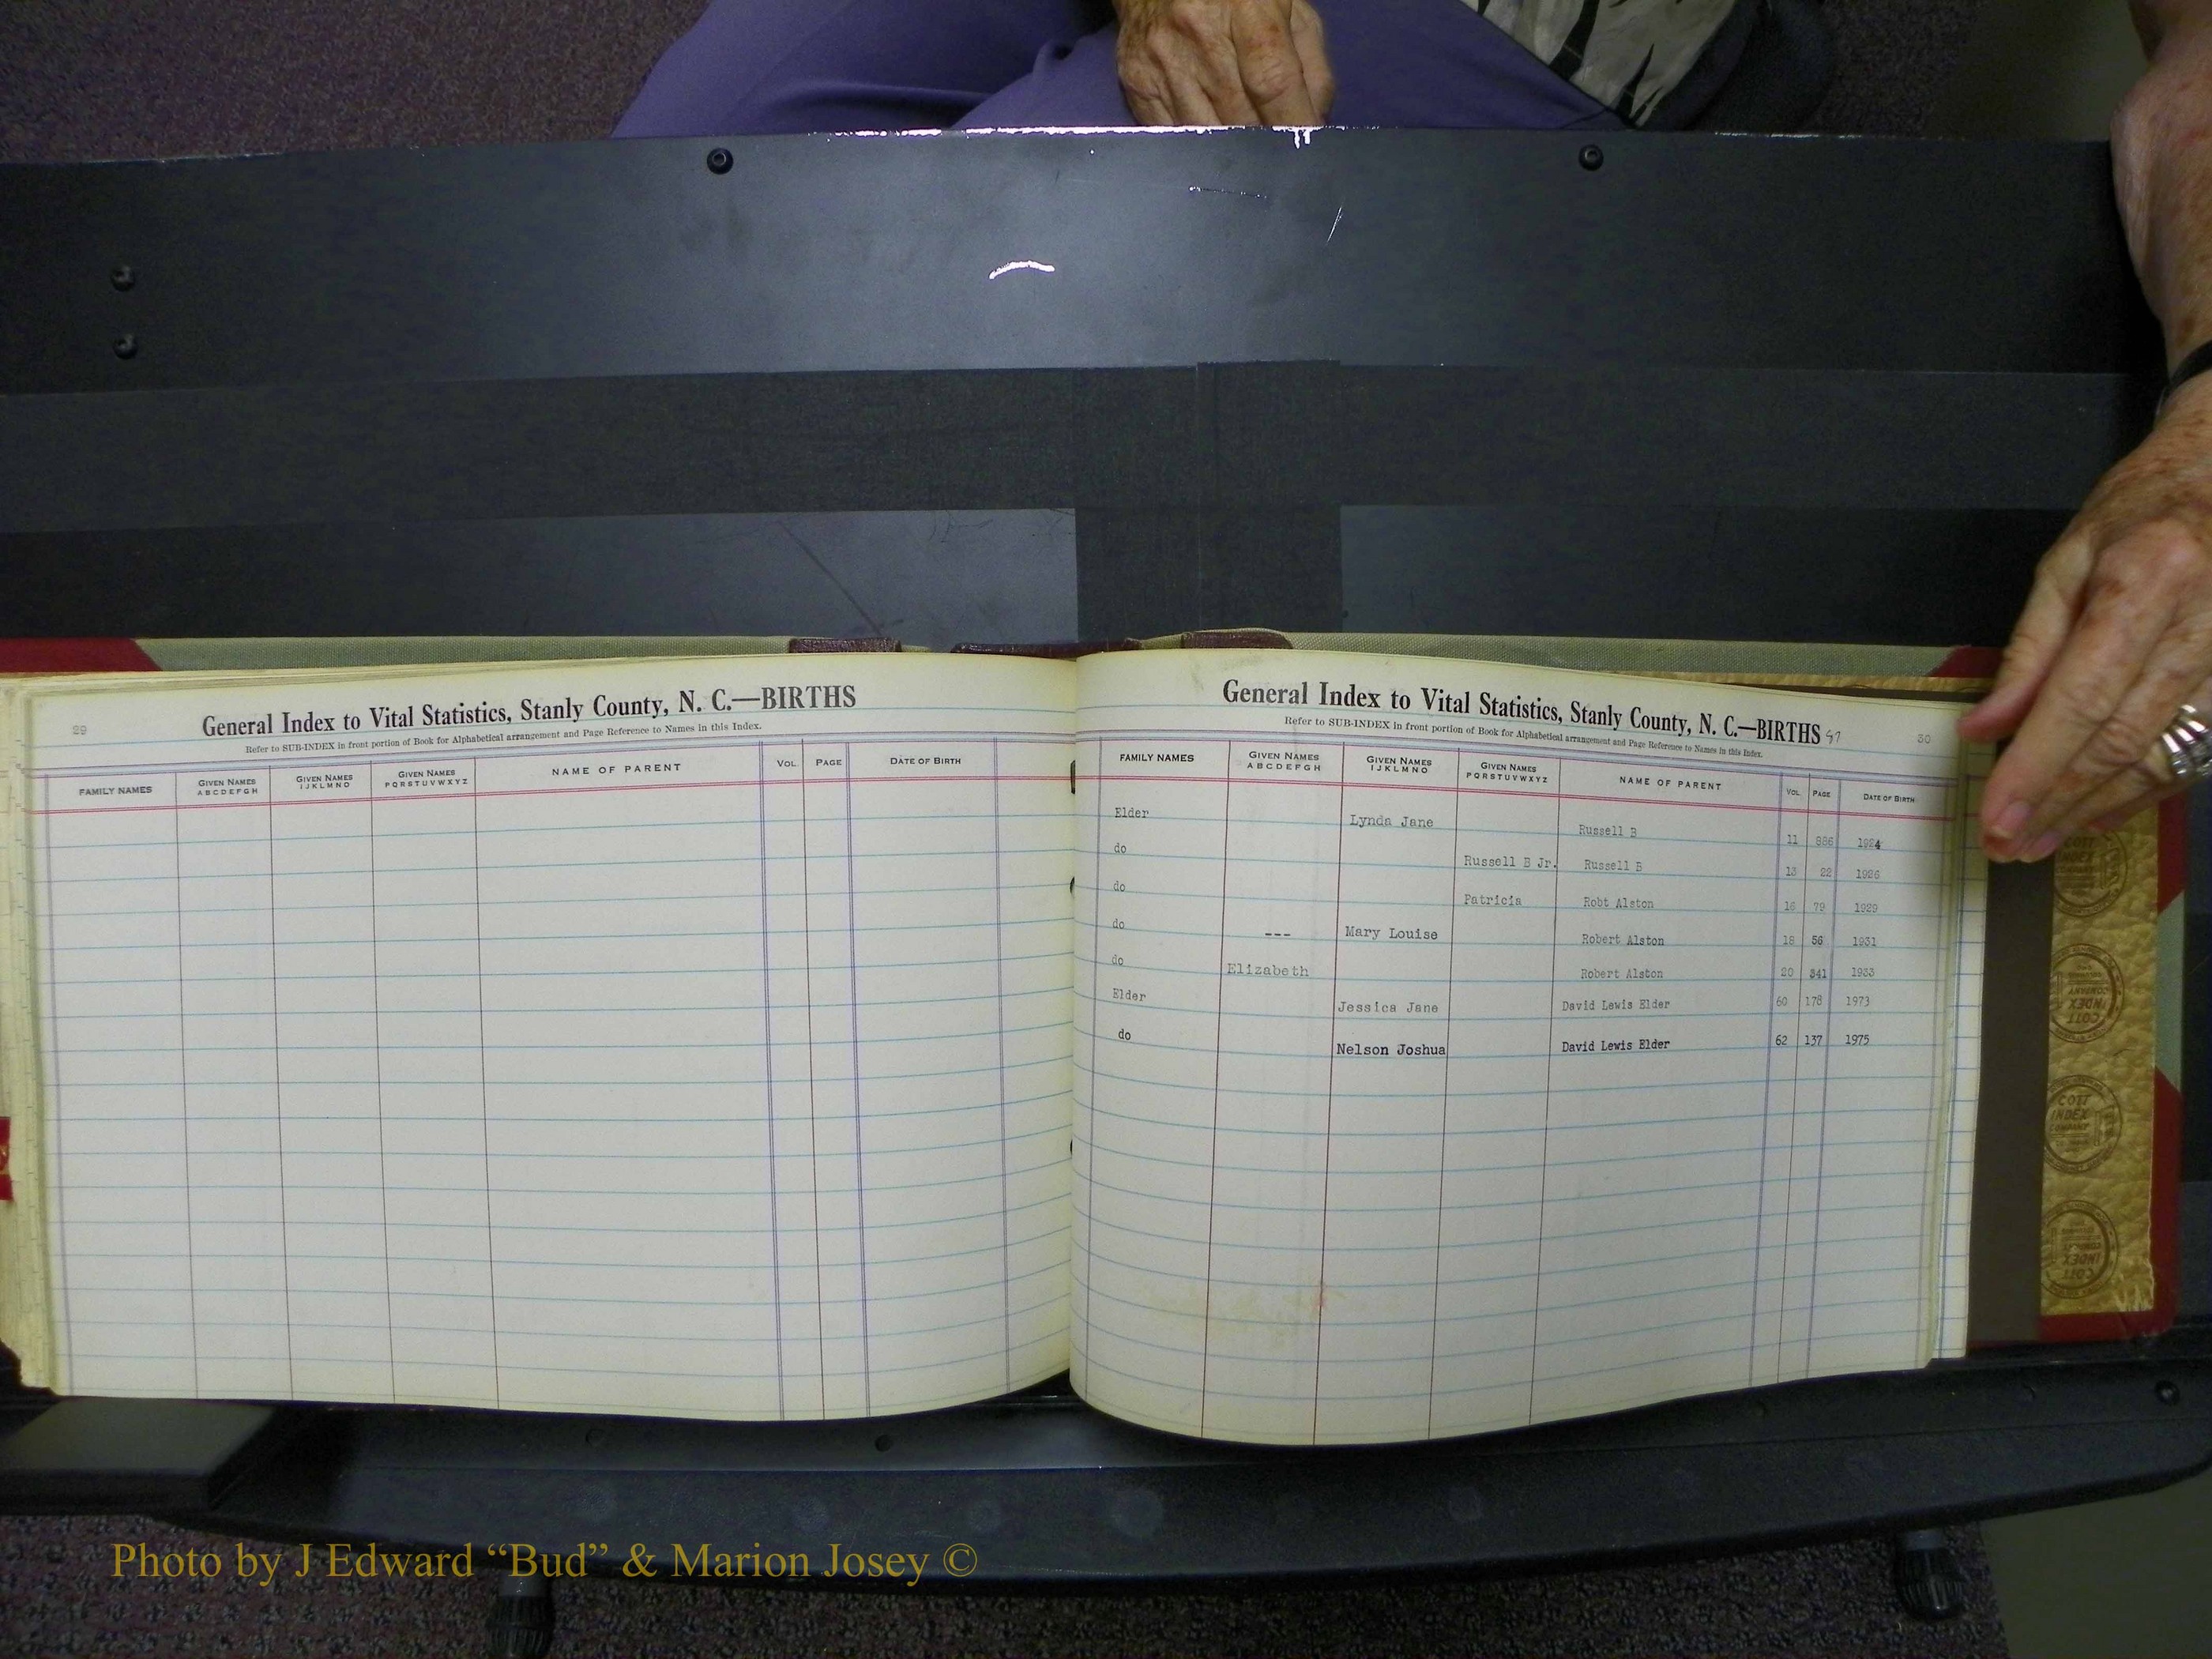 29
General Index to Vital Statistics, Stanly County, N. C.—BIRTHS
Refer to SUB-INDEX in front portion of Book for Alphabetical arrangement and Page Reference to Names in this Index.
FAMILY NAMES GIVEN NAMES ABCDEFGH GIVEN NAMES IJKLMNO GIVEN NAMES PQRSTUVWXYZ NAME OF PARENT VOL. PAGE DATE OF BIRTH
General Index to Vital Statistics, Stanly County, N. C.—BIRTHS 97 30
Refer to SUB-INDEX in front portion of Book for Alphabetical arrangement and Page Reference to Names in this Index.
FAMILY NAMES GIVEN NAMES ABCDEFGH GIVEN NAMES IJKLMNO GIVEN NAMES PQRSTUVWXYZ NAME OF PARENT VOL. PAGE DATE OF BIRTH
Elder Lynda Jane Russell B 11 886 1924
do Russell B Jr. Russell B 13 22 1926
do Patricia Robt Alston 16 79 1929
do --- Mary Louise Robert Alston 18 56 1931
do Elizabeth Robert Alston 20 341 1933
Elder Jessica Jane David Lewis Elder 60 178 1973
do Nelson Joshua David Lewis Elder 62 137 1975
COTT INDEX COMPANY
COTT INDEX COMPANY
COTT INDEX COMPANY
COTT INDEX
Photo by J Edward “Bud” & Marion Josey ©